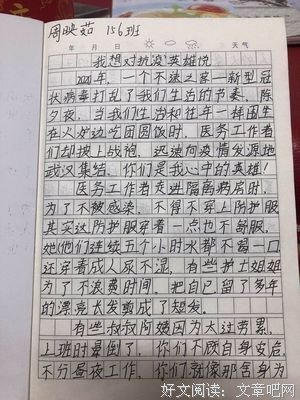 周映茹 156班
年 月 日 天气
我想对抗疫英雄说
2020年，一个不速之客—新型冠
状病毒打乱了我们生活的节奏，除
夕夜，当我们生活和往年一样围坐
在火炉边吃团圆饭时，医务工作者
们却披上战袍，迅速向疫情发源地
武汉集结。你们是我心中的英雄！
医务工作者走进隔离病房时，
为了不被感染，不得不穿上防护服
其实这防护服穿着一点也不舒服，
她(他)们连续五个小时水都不喝一口
还穿着成人尿不湿，有些护士姐姐
为了不浪费时间，把自己留了多年
的漂亮长发剪成了短发。
有些叔叔阿姨因为太过劳累，
上班时晕倒了，你们不顾自身安危，
不分昼夜工作，你们就像那舍身为
好文阅读：文章吧网